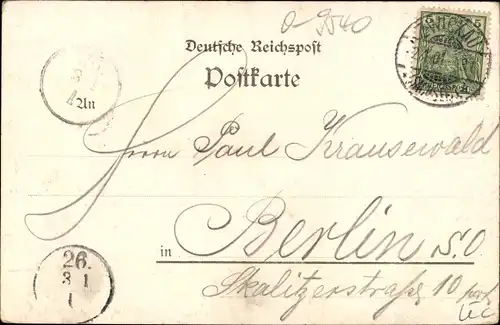 a-9540
Deutsche Reichspost
Postkarte
An
Herrn Paul Krausewald
in Berlin S.O
Skalitzerstraße 10
26.
3 1
1